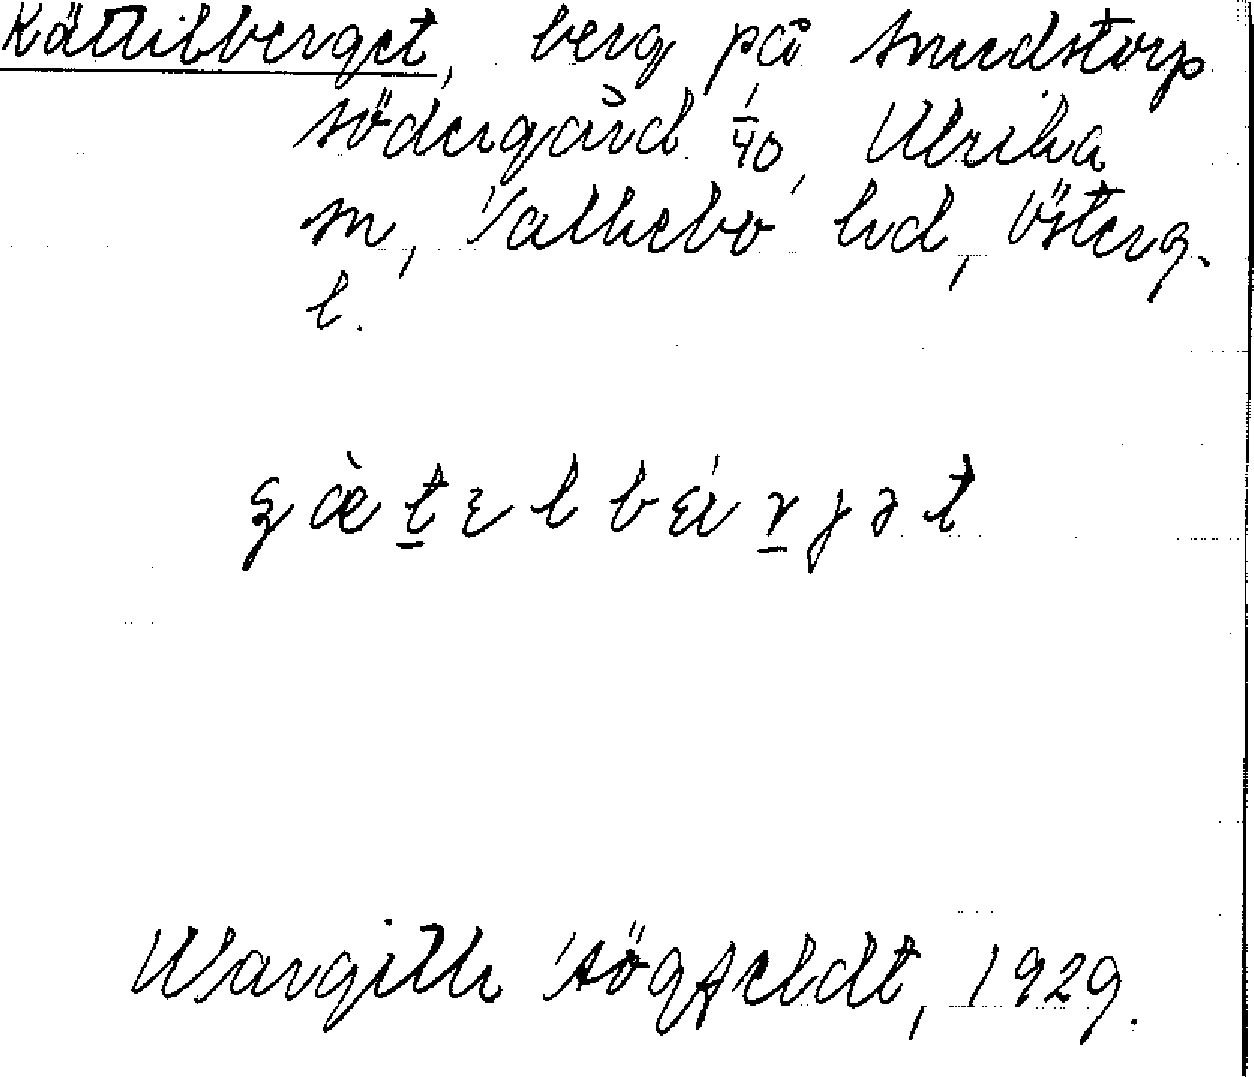 Kättilberget, berg på Smedstorp
Södergård 1/40, Ulrika
sn, Valkebo hd, Österg.
l.
Margith Högfeldt, 1929.